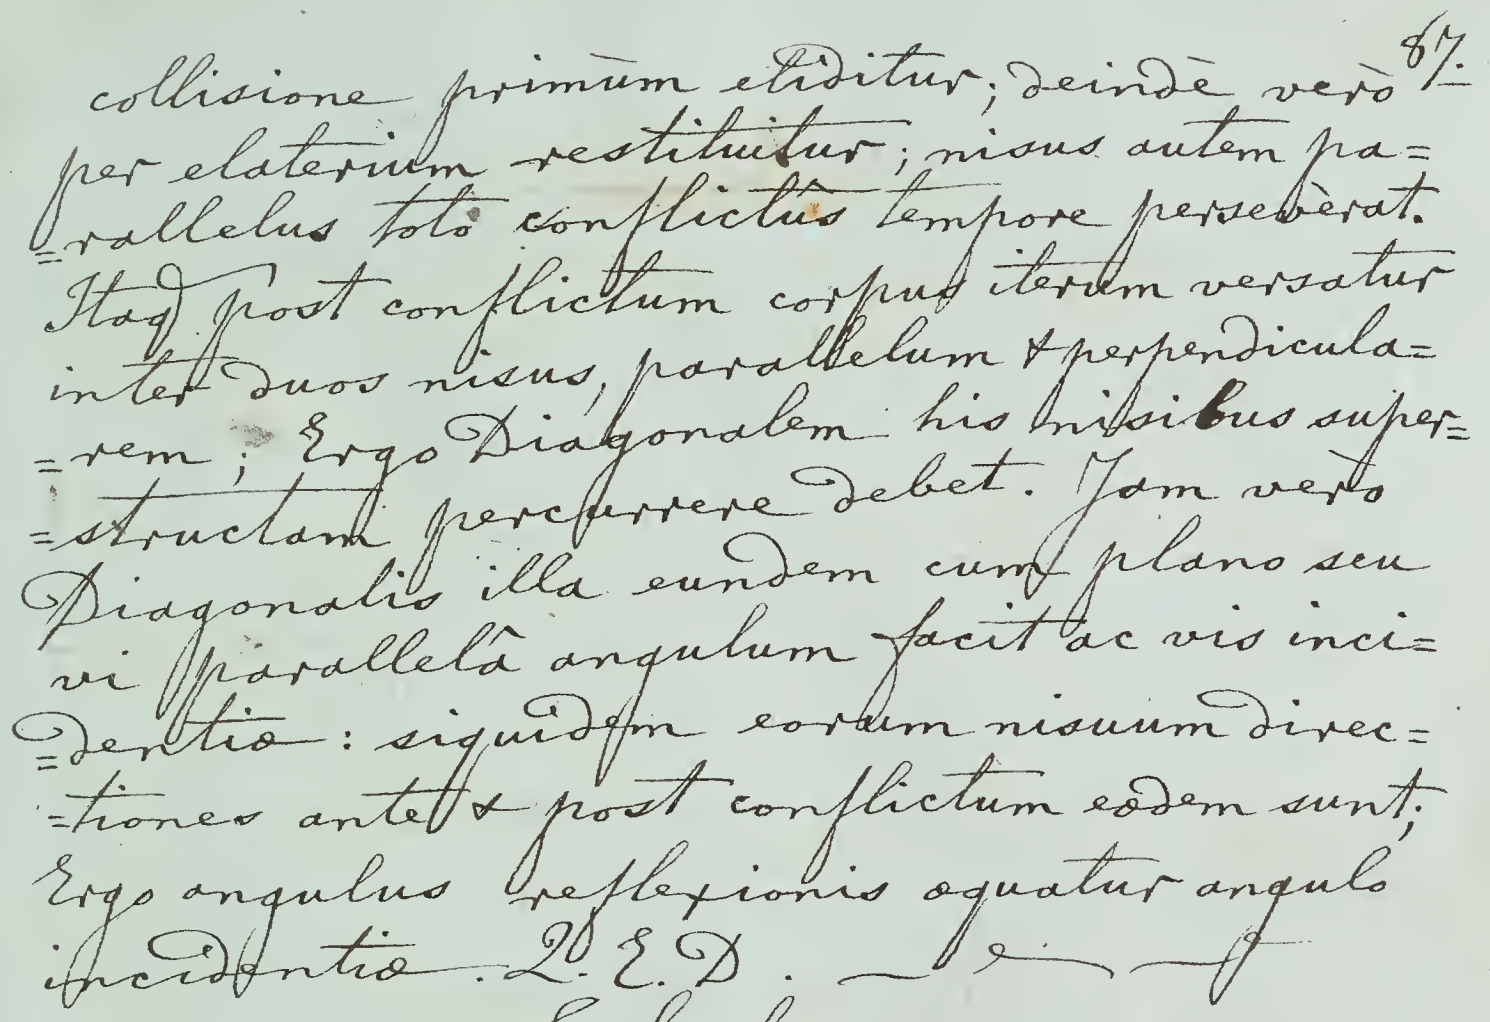 87.
collisione primùm eliditur; deindè verò
per elaterium restituitur; nisus autem pa=
=rallelus toto conflictûs tempore persevèrat.
Itaq post conflictum corpus iterum versatur
inter duos nisus, parallelum & perpendicula=
=rem; Ergo Diagonalem his nisibus super=
=structam percurrere debet. Jam verò
Diagonalis illa eundem cum plano seu
vi parallelâ angulum facit ac vis inci=
=dentiæ: siquidem eorum nisuum direc=
=tiones ante & post conflictum eædem sunt;
Ergo angulus reflexionis æquatur angulo
incidentiæ. Q. E. D.